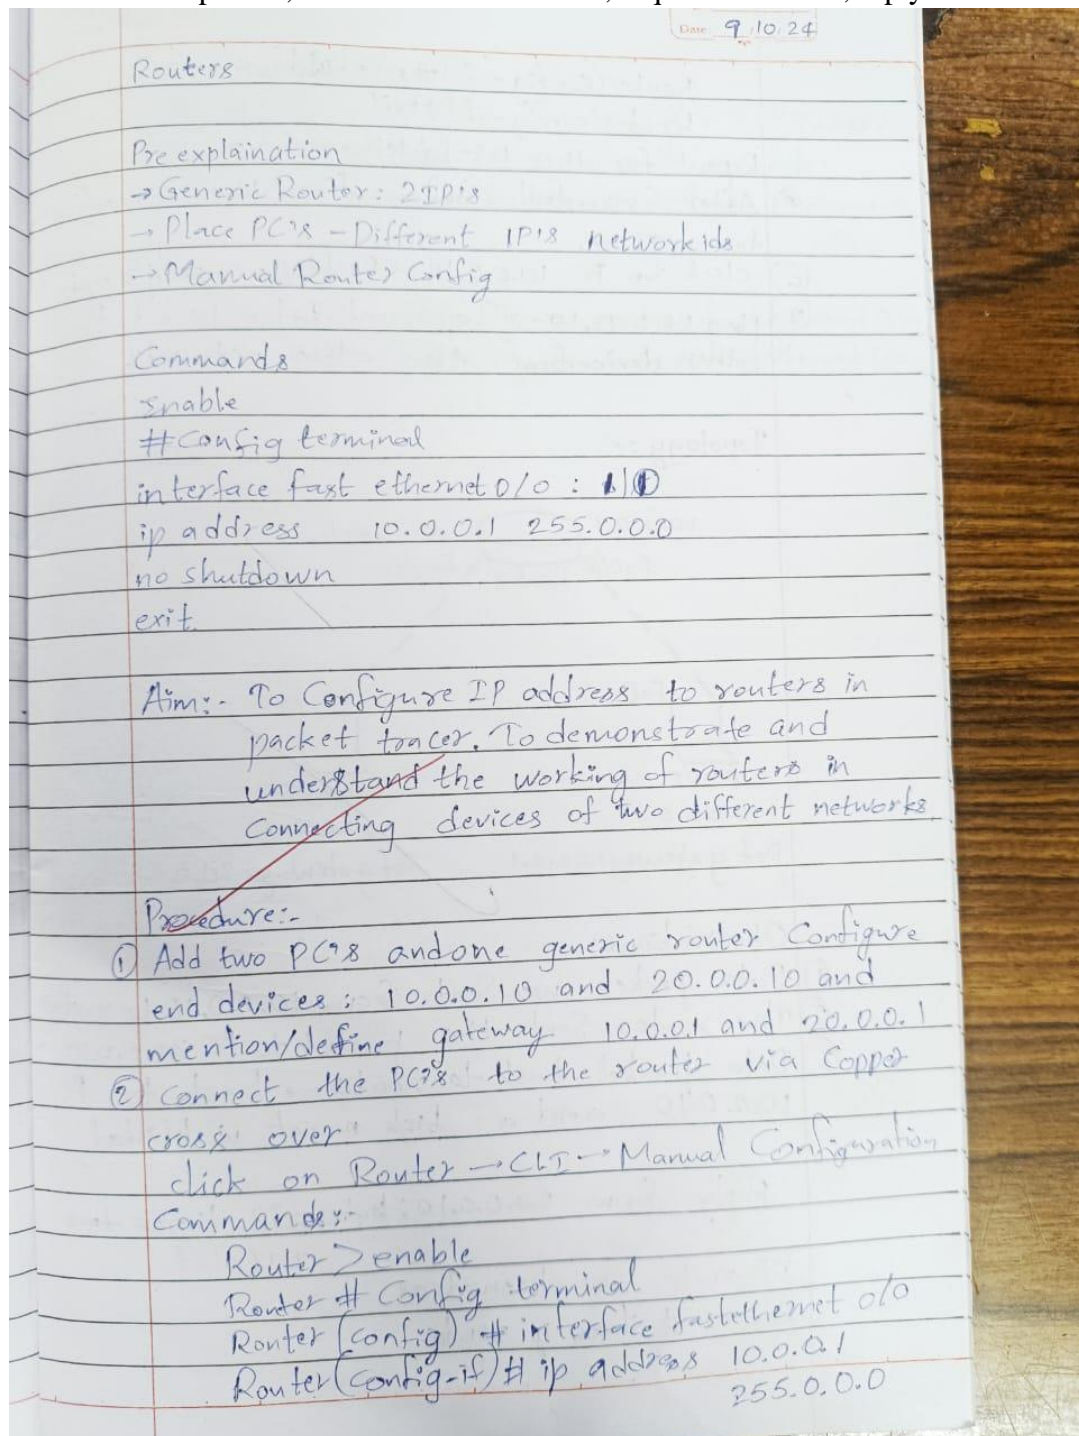 Date 9.10.24
Routers
Pre explaination
→ Generic Router: 2IP's
→ Place PC's - Different IP's network ids
→ Manual Router Config
Commands
enable
#Config terminal
interface fast ethernet 0/0 :
ip address 10.0.0.1 255.0.0.0
no shutdown
exit.
Aim:- To Configure IP address to routers in
packet tracer. To demonstrate and
understand the working of routers in
Connecting devices of two different networks.
Procedure:-
① Add two PC's and one generic router Configure
end devices: 10.0.0.10 and 20.0.0.10 and
mention/define gateway 10.0.0.1 and 20.0.0.1
② Connect the PC's to the router via Copper
cross over.
click on Router → CLI → Manual Configuration
Commands:-
Router > enable
Router # Config terminal
Router (config) # interface fastethernet 0/0
Router (config-if) # ip address 10.0.0.1
255.0.0.0